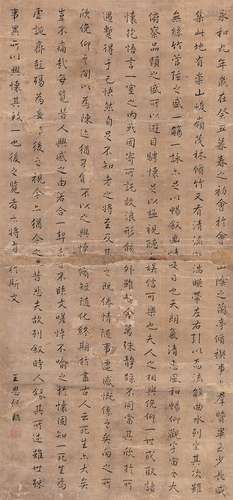 永和九年歲在癸丑暮春之初會於會山陰之蘭亭脩禊事群賢畢至少長咸
集此地有崇山峻嶺茂林脩竹又有清流湍映帶左右引以為流觴曲水列坐其次雖
無絲竹管弦之盛一觴一詠亦足以暢敘幽情是日也天朗氣清惠風和暢仰觀宇宙之大
俯察品類之盛所以遊目騁懷足以極視聽娛信可樂也夫人之相與俯仰一世或取諸
懷抱悟言一室之內或因寄所託放浪形骸之外雖趣舍萬殊靜躁不同當其欣於所
遇暫得於己快然自足不知老之將至及其所之既惓情隨事遷感慨係之矣向之所
欣俛仰之間以為陳迹猶不能不以之興懷況脩短隨化終期於盡古人云死生亦大矣
豈不痛哉每覽昔人興感之由若合一契未嘗不臨文嗟悼不能喻之於懷固知一死生為
虛誕齊彭殤為妄作後之視今亦猶今之視昔悲夫故列敘時人錄其所述雖世殊
事異所以興懷其致一也後之覽者亦將有感於斯文
王思任臨